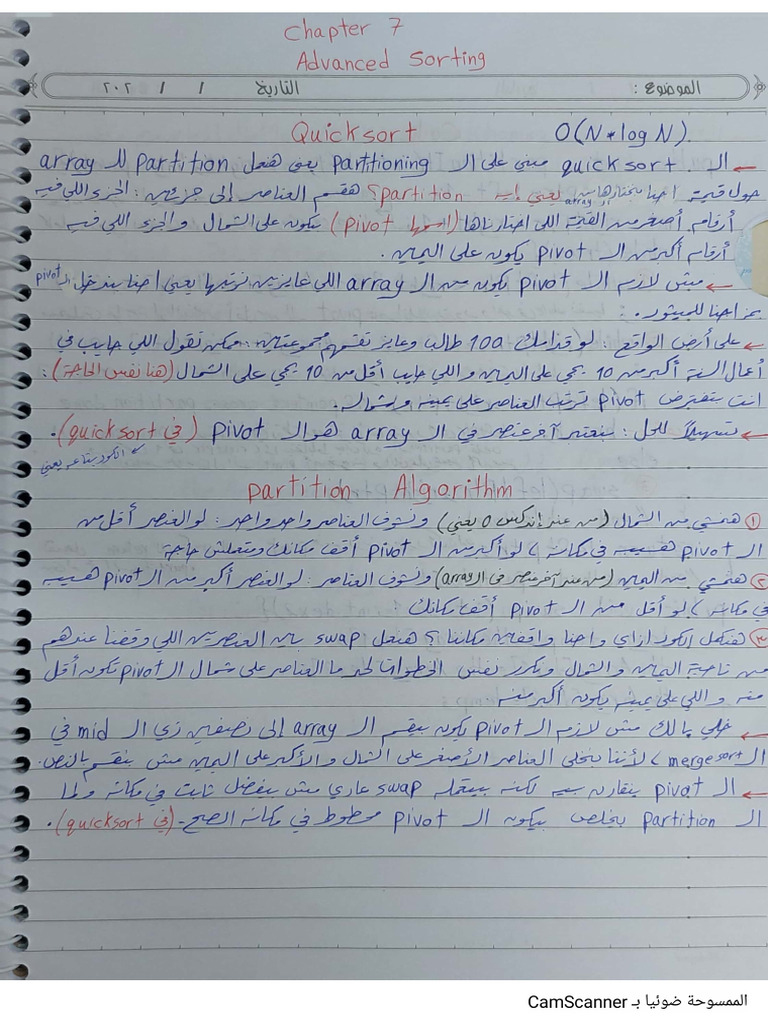 Chapter 7
Advanced Sorting
الموضوع : التاريخ / / ٢٠٢
Quicksort O(N*logN)
← الـ quicksort مبنى على الـ partitioning يعنى هنعمل partition للـ array
حول قيمة احنا بنختارها من الـ array يعنى إيه partition؟ هنقسم العناصر إلى جزئين : الجزء اللي فيه
أرقام أصغر من القيمة اللى اختارناها (اسمها pivot) يكون على الشمال والجزء اللي فيه
أرقام أكبر من الـ pivot يكون على اليمين .
← مش لازم الـ pivot يكون من الـ array اللي عايزين نرتبها يعنى احنا بندخل الـ pivot
بمزاجنا للميثود .
← على أرض الواقع : لو قدامك 100 طالب وعايز تقسهم مجموعتين : ممكن تقول اللي جايب في
أعمال السنة أكبر من 10 يجي على اليمين واللي جايب أقل من 10 يجي على الشمال (هنا نفس الحاجة) :
انت بتفترض pivot ترتب العناصر على يمينه وشماله .
← تسهيلاً للحل : بنعتبر آخر عنصر في الـ array هو الـ pivot (في quicksort) .
الكود بتاعه يعني
partition Algorithm
① همشي من الشمال (من عند إندكس 0 يعني) ونشوف العناصر واحد واحد : لو العنصر أقل من
الـ pivot هسيبه في مكانه ، لو أكبر من الـ pivot أقف مكانك ومتعملش حاجة
② همشي من اليمين (من عند آخر عنصر في الـ array) ونشوف العناصر : لو العنصر أكبر من الـ pivot هسيبه
في مكانه ، لو أقل من الـ pivot أقف مكانك :
③ هنكمل الكود ازاي واحنا واقفين مكاننا ؟ هنعمل swap بين العنصرين اللي وقفنا عندهم
من ناحية اليمين والشمال ونكرر نفس الخطوات لحد ما العناصر على شمال الـ pivot تكون أقل
منه واللي على يمينه يكون أكبر منه
← خلي بالك مش لازم الـ pivot يكون بيقسم الـ array إلى نصفين زي الـ mid في
الـ mergesort ، لأننا بنخلي العناصر الأصغر على الشمال والأكبر على اليمين مش بنقسم بالنص .
← الـ pivot بنقارن بيه لكنه بيتعمله swap عادي مش بيفضل ثابت في مكانه ولما
الـ partition بيخلص بيكون الـ pivot محطوط في مكانه الصح - (في quicksort) .
الممسوحة ضوئيا بـ CamScanner